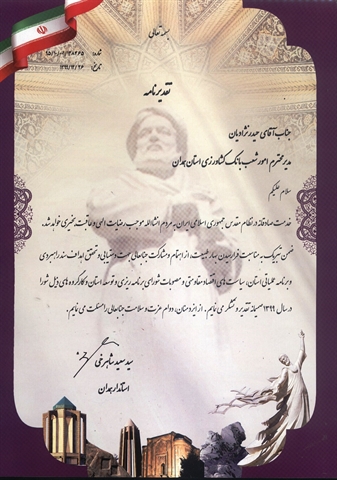 بسمه تعالی
شماره: ۱۵/۱۰/۰۱/۱۲۸۴۶۵
تاریخ: ۱۳۹۹/۱۲/۲۶
تقدیرنامه
جناب آقای حیدرنژادیان
مدیر محترم امور شعب بانک کشاورزی استان همدان
سلام علیکم
خدمت صادقانه در نظام مقدس جمهوری اسلامی ایران به مردم انشاالله موجب رضایت الهی و عاقبت بخیری خواهد شد.
ضمن تبریک به مناسبت فرارسیدن بهار طبیعت، از اهتمام و مشارکت جنابعالی جهت دستیابی و تحقق اهداف سند راهبردی
و برنامه عملیاتی استان، سیاست های اقتصاد مقاومتی و مصوبات شورای برنامه ریزی و توسعه استان و کارگروه های ذیل شورا
در سال ۱۳۹۹ صمیمانه تقدیر و تشکر می نمایم. از ایزد منان، دوام عزت و سلامت جنابعالی را مسئلت می نمایم.
سید سعید شاهرخی
استاندار همدان